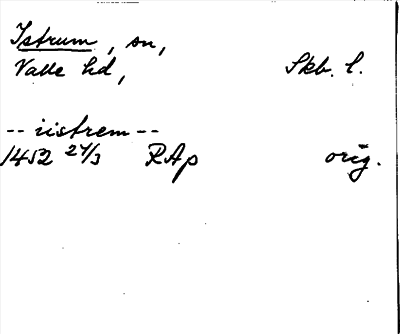 Istrum, sn,
Valle hd, Skb. l.
-- iistrem --
1452 24/3 RAp orig.